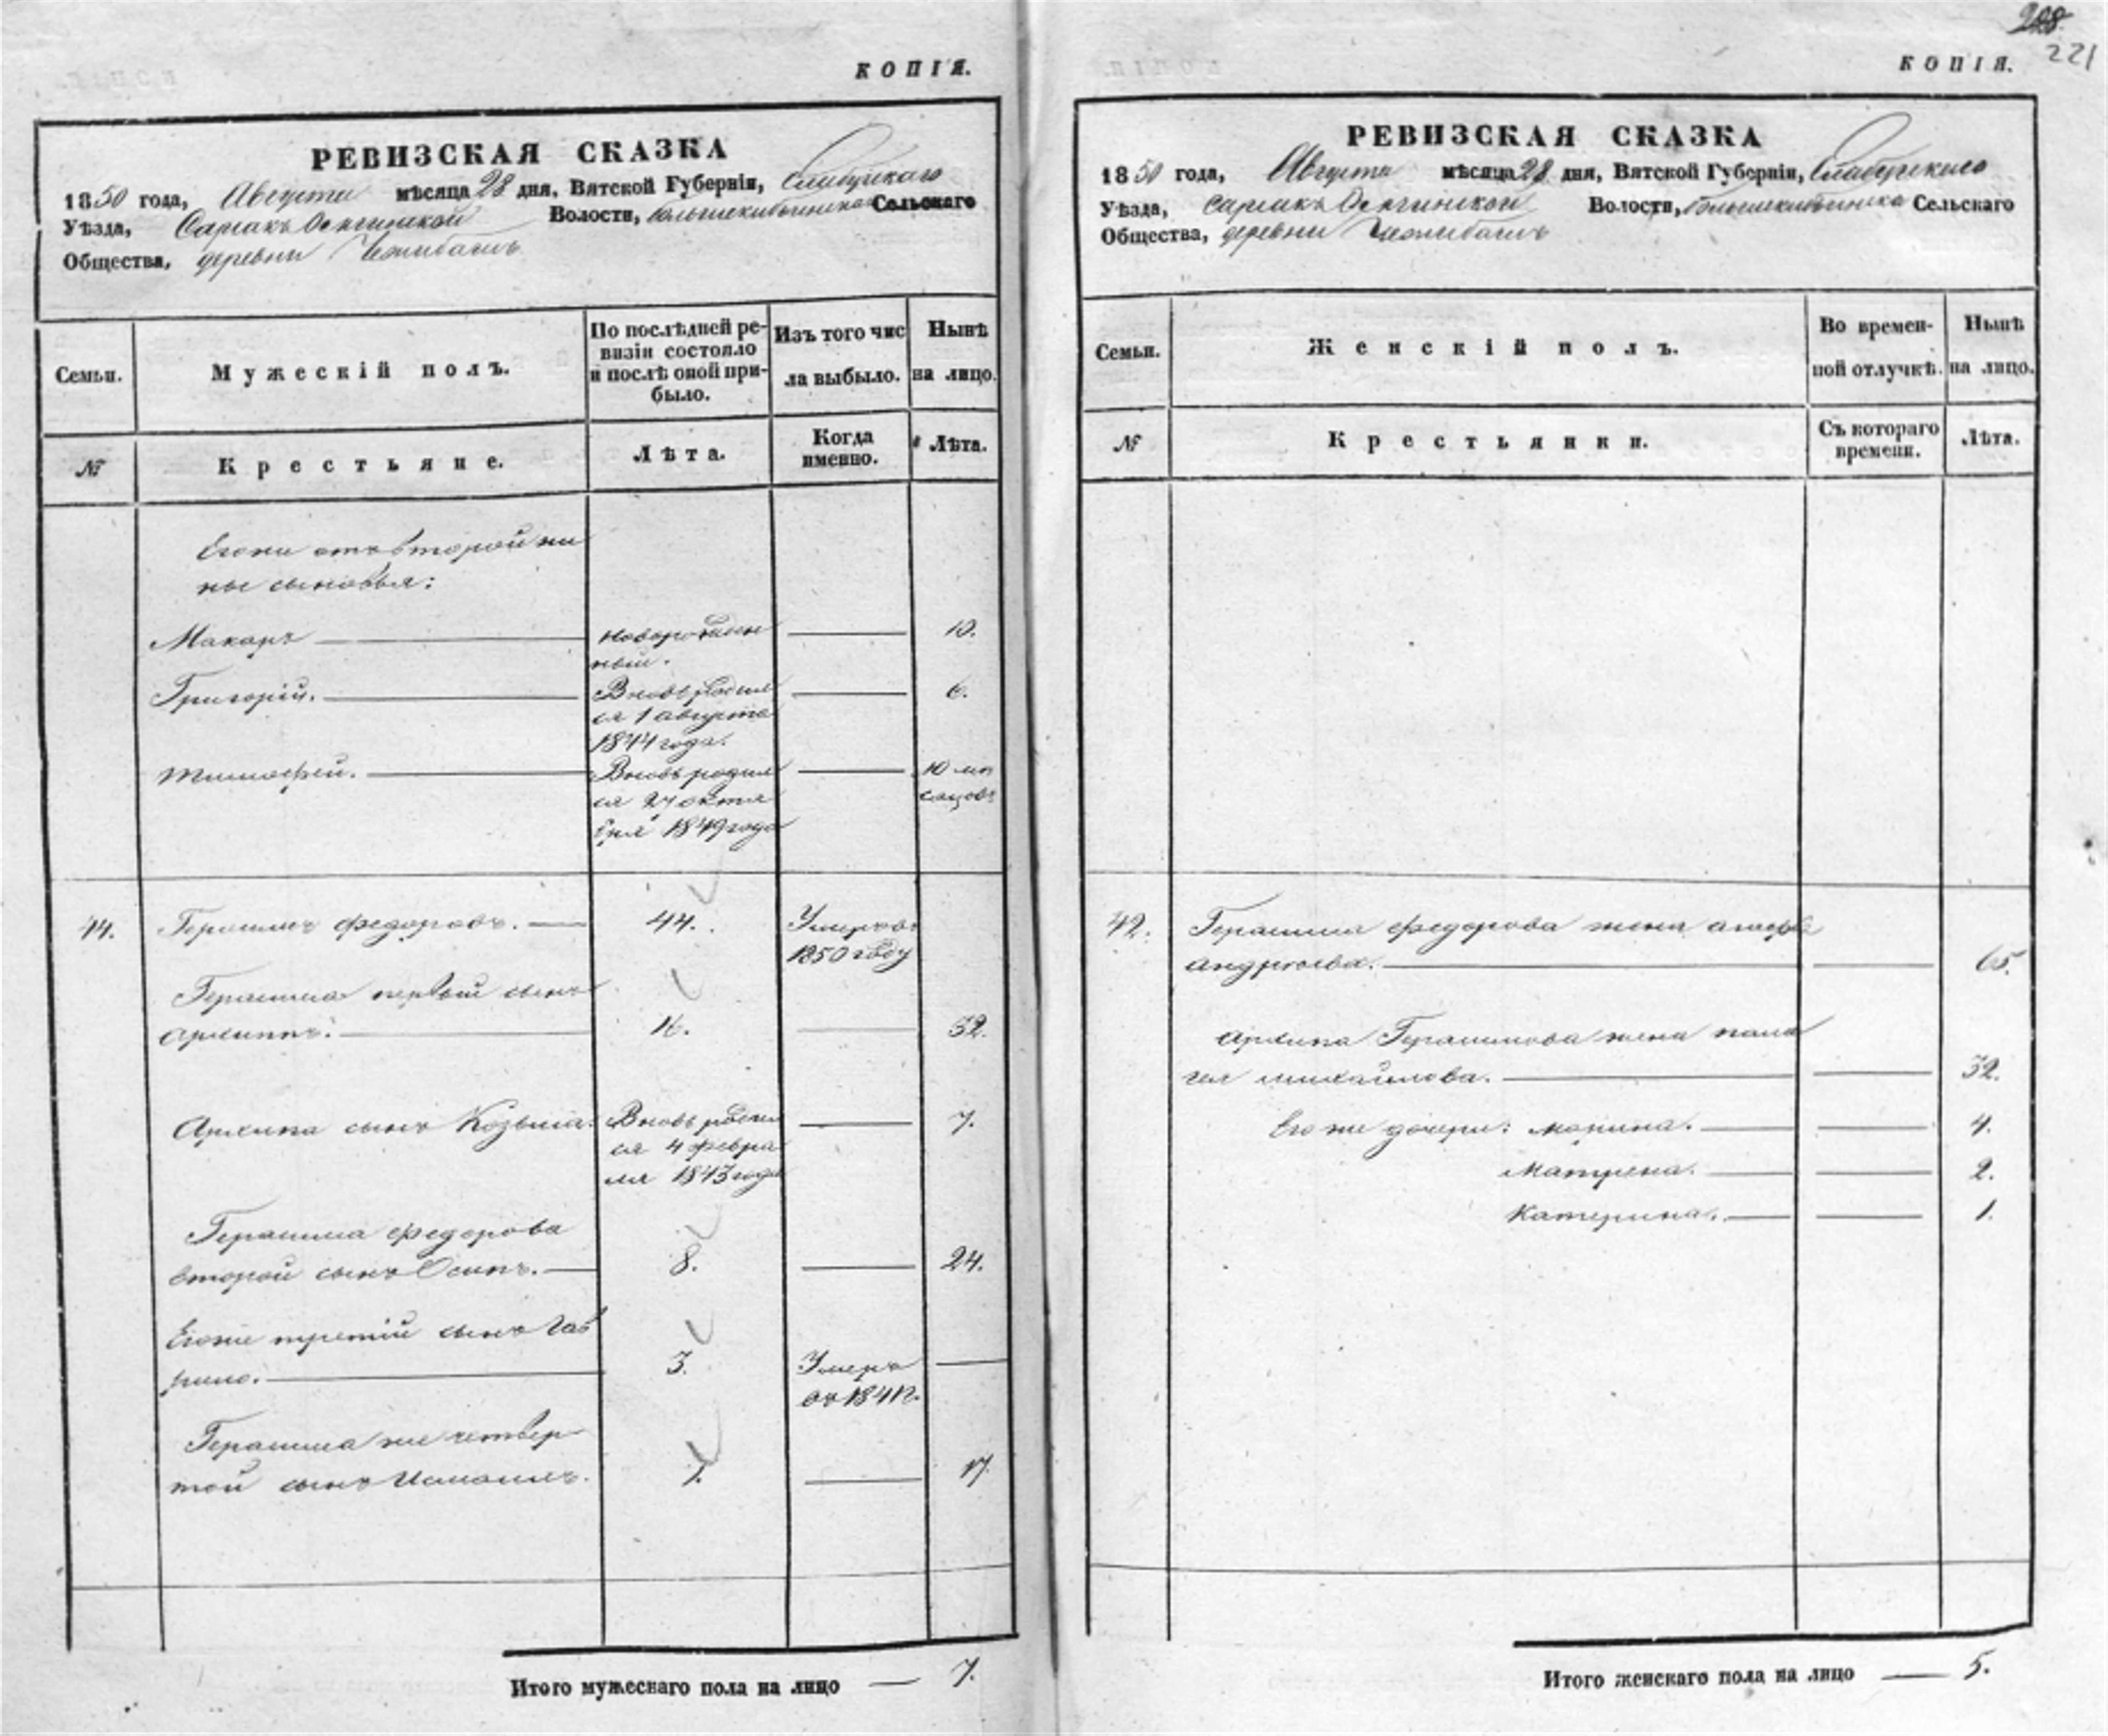 КОПІЯ.
РЕВИЗСКАЯ СКАЗКА
1850 года, Августа мѣсяца 28 дня, Вятской Губерніи, Елабужскаго
Уѣзда, Волости, Сельскаго
Общества, деревни
Семьи. Мужескій полъ. По послѣдней ре-
визіи состояло
и послѣ оной при-
было. Изъ того чис
ла выбыло. Нынѣ
на лицо.
№ Крестьяне. Лѣта. Когда
именно. Лѣта.
Егоже отъ второй же
ны сыновья:
Макаръ новорожден 10.
ный.
Григорій. Вновь родил 6.
ся 1 августа
1844 года.
Тимофей. Вновь родил 10 мѣ
ся 27 октя сяцовъ
бря 1849 года
44. Герасимъ Федоровъ. 44. Умеръ въ
1850 году
Герасима первый сынъ
Архипъ. 16. 32.
Архипа сынъ Козьма. Вновь родил 7.
ся 4 февра
ля 1843 года
Герасима Федорова
второй сынъ Осипъ. 8. 24.
Егоже третій сынъ Гав
рило. 3. Умеръ
въ 1841 г.
Герасима же четвер
той сынъ 1. 17.
Итого мужескаго пола на лицо 7.
221
КОПІЯ.
РЕВИЗСКАЯ СКАЗКА
1850 года, Августа мѣсяца 28 дня, Вятской Губерніи, Елабужскаго
Уѣзда, Волости, Сельскаго
Общества, деревни
Семьи. Женскій полъ. Во времен-
ной отлучкѣ. Нынѣ
на лицо.
№ Крестьянки. Съ котораго
времени. Лѣта.
Герасима Федорова жена
Андреева. 65.
Архипа Герасимова жена Пала
гея Михайлова. 32.
Его же дочери: Марина. 4.
Матрена. 2.
Катерина. 1.
Итого женскаго пола на лицо 5.